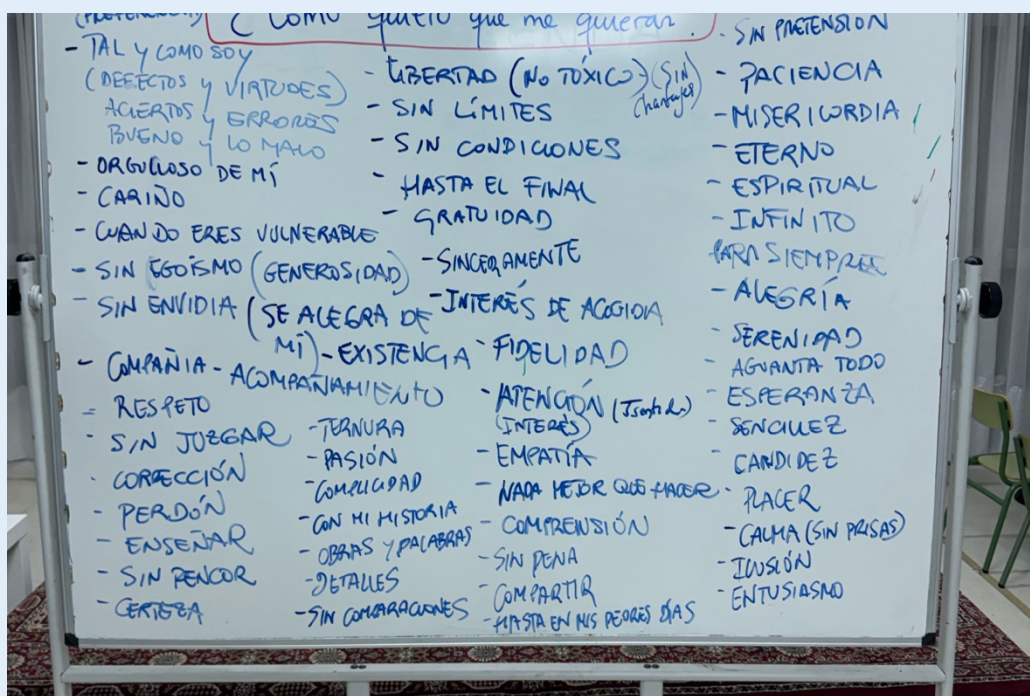 (PREFERENCIA)
¿Cómo quiero que me quieran?
- TAL Y COMO SOY
(DEFECTOS y VIRTUDES)
ACIERTOS y ERRORES
BUENO y LO MALO
- ORGULLOSO DE MÍ
- CARIÑO
- CUANDO ERES VULNERABLE
- SIN EGOÍSMO (GENEROSIDAD)
- SIN ENVIDIA (SE ALEGRA DE
MÍ)
- COMPAÑIA - ACOMPAÑAMIENTO
- RESPETO
- SIN JUZGAR
- CORRECCIÓN
- PERDÓN
- ENSEÑAR
- SIN RENCOR
- CERTEZA
- LIBERTAD (NO TÓXICO) (SIN
chantajes)
- SIN LÍMITES
- SIN CONDICIONES
- HASTA EL FINAL
- GRATUIDAD
- SINCERAMENTE
- INTERÉS DE ACOGIDA
- EXISTENCIA
- FIDELIDAD
- TERNURA
- PASIÓN
- COMPLICIDAD
- CON MI HISTORIA
- OBRAS Y PALABRAS
- DETALLES
- SIN COMPARACIONES
- ATENCIÓN
(INTERÉS)
- EMPATÍA
- NADA MEJOR QUE HACER
- COMPRENSIÓN
- SIN PENA
- COMPARTIR
- HASTA EN MIS PEORES DÍAS
- SIN PRETENSION
- PACIENCIA
- MISERICORDIA
- ETERNO
- ESPIRITUAL
- INFINITO
PARA SIEMPRE
- ALEGRÍA
- SERENIDAD
- AGUANTA TODO
- ESPERANZA
- SENCILLEZ
- CANDIDEZ
- PLACER
- CALMA (SIN PRISAS)
- ILUSIÓN
- ENTUSIASMO